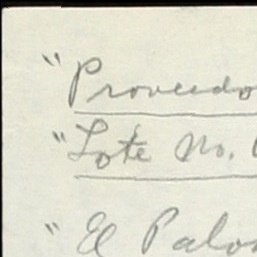 " Proveedo
" Lote No.
" El Palo